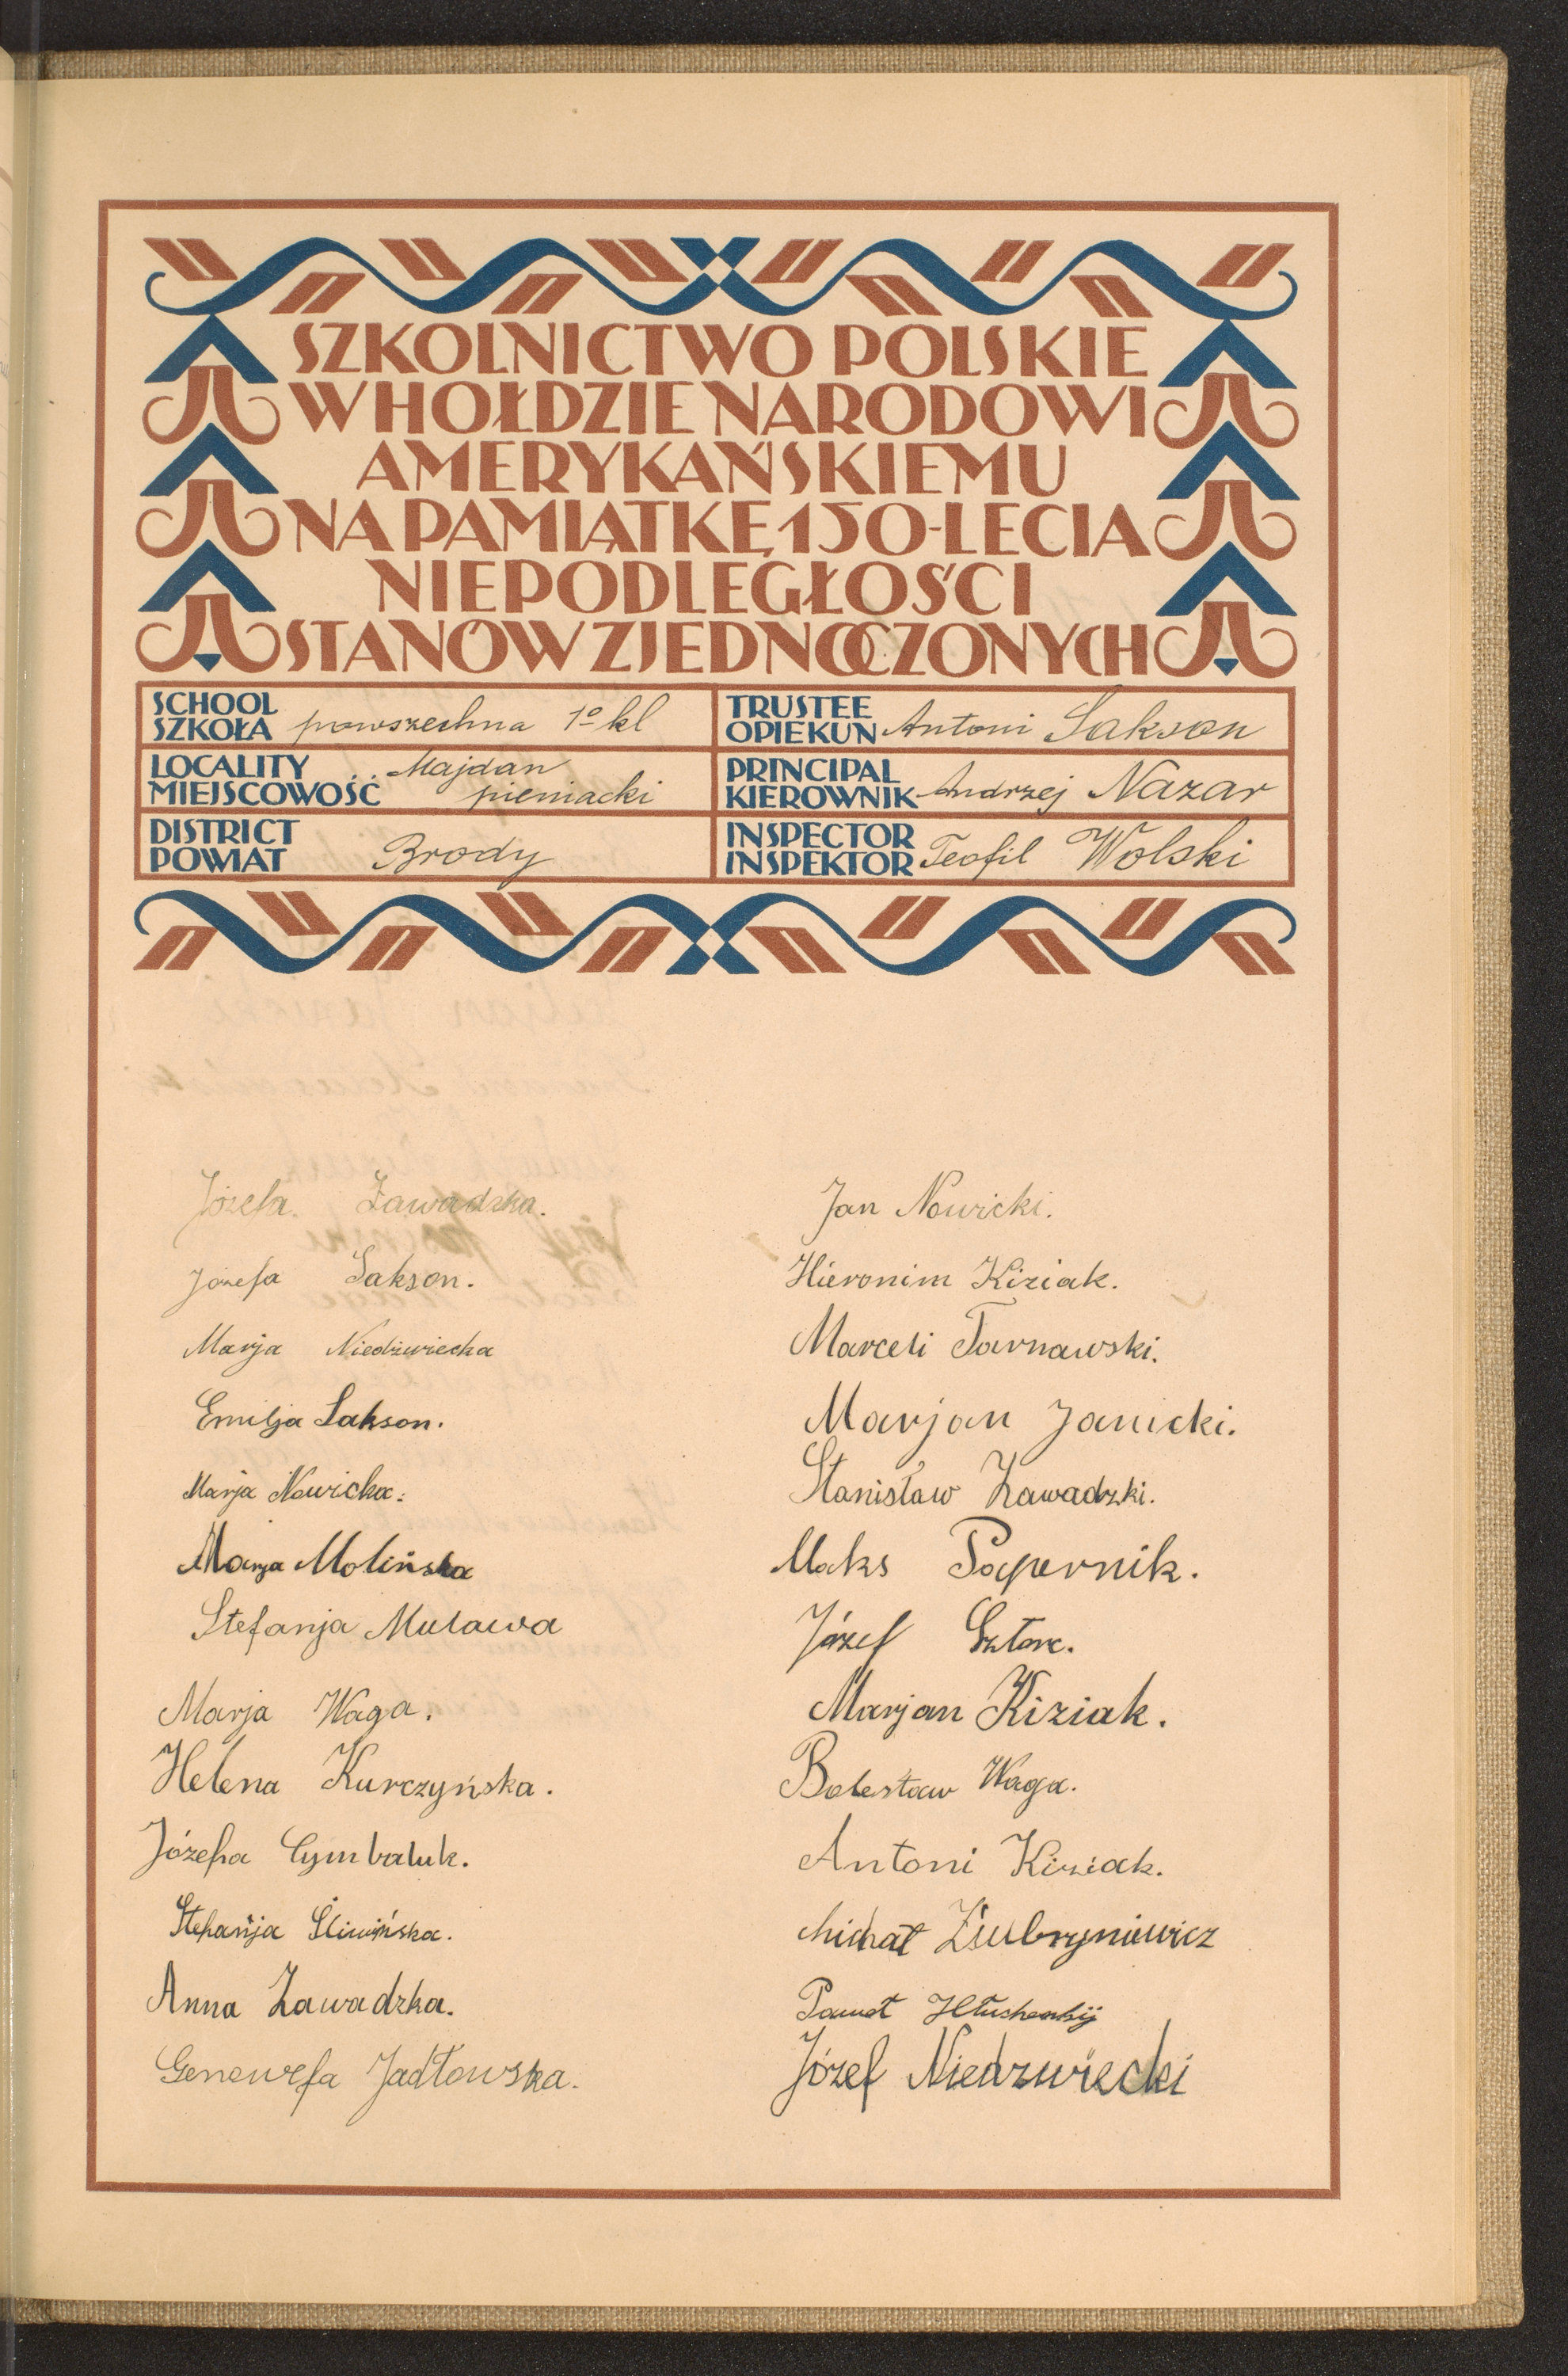 SZKOLNICTWO POLSKIE
W HOŁDZIE NARODOWI
AMERYKAŃSKIEMU
NA PAMIĄTKĘ 150-LECIA
NIEPODLEGŁOŚCI
STANÓW ZJEDNOCZONYCH
SCHOOL
SZKOŁA powszechna 1º kl
TRUSTEE
OPIEKUN Antoni Sakson
LOCALITY
MIEJSCOWOŚĆ Majdan
pieniacki
PRINCIPAL
KIEROWNIK Andrzej Nazar
DISTRICT
POWIAT Brody
INSPECTOR
INSPEKTOR Teofil Wolski
Józefa Zawadzka.
Józefa Sakson.
Marja Niedźwiecka
Emilja Sakson.
Marja Nowicka.
Marja Molińska
Stefanja Mulawa
Marja Waga.
Helena Kurczyńska.
Józefa Cymbaluk.
Stefanja Śliwińska.
Anna Zawadzka.
Genowefa Jadłowska.
Jan Nowicki.
Hieronim Kiziak.
Marceli Tarnawski.
Marjan Janicki.
Stanisław Zawadzki.
Maks Papernik.
Józef Sztorc.
Marjan Kiziak.
Bolesław Waga.
Antoni Kiziak.
Michał
Paweł
Józef Niedzwiecki